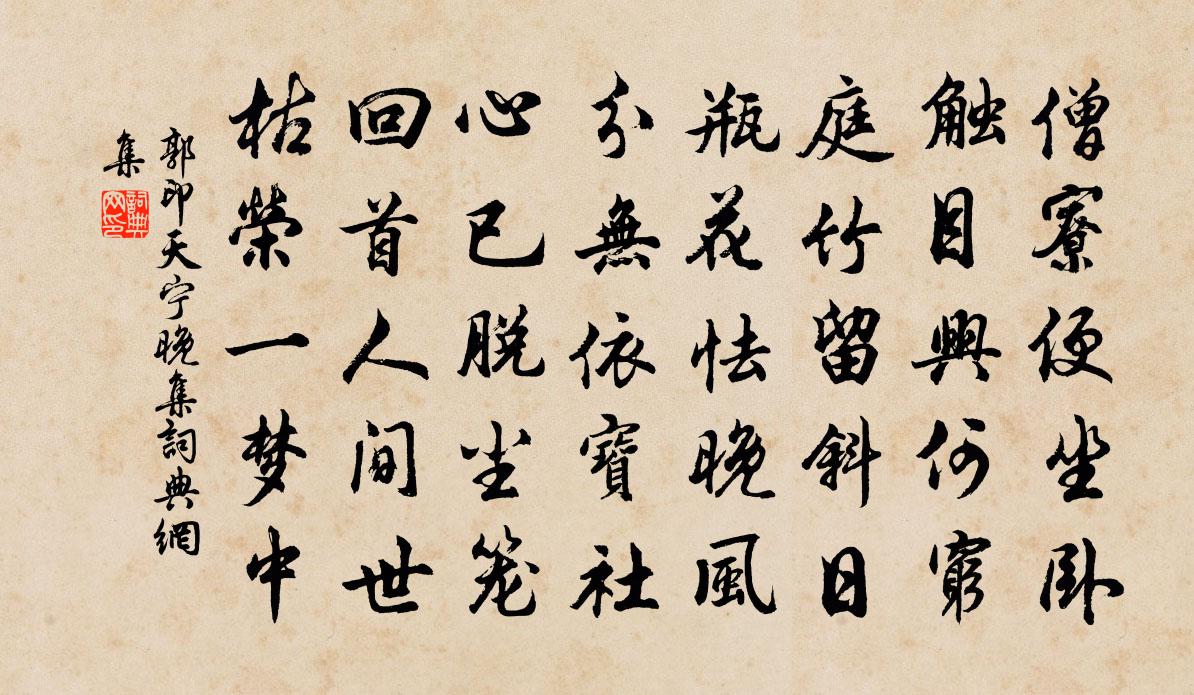 僧寮便坐卧
触目興何窮
庭竹留斜日
瓶花怯晚風
分無依寶社
心已脱尘笼
回首人间世
枯榮一梦中
郭印天宁晚集詞典網
集
詞典网印